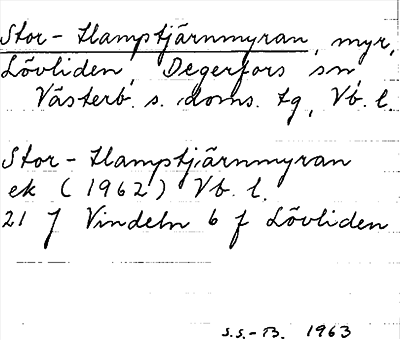 Stor-Hampstjärnmyran, myr,
Lövliden, Degerfors sn,
Västerb. s. doms. tg, Vb. l.
Stor-Hampstjärnmyran
ek (1962) Vb. l.
21 J Vindeln 6 f Lövliden
S.S.-B. 1963